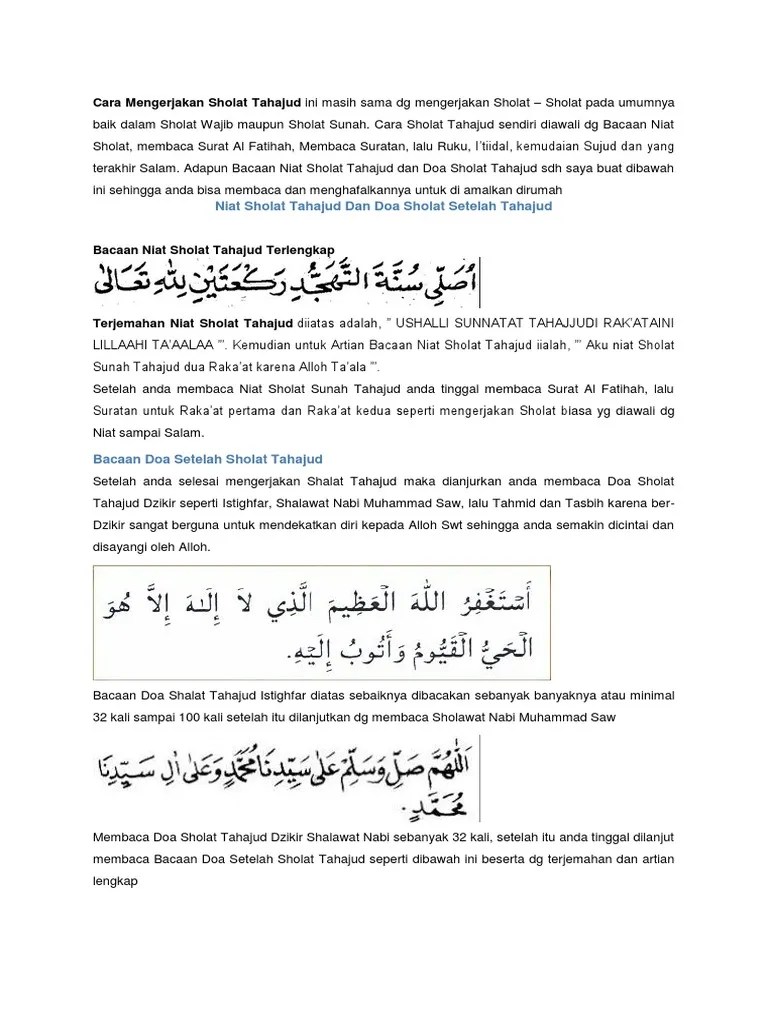 Cara Mengerjakan Sholat Tahajud ini masih sama dg mengerjakan Sholat – Sholat pada umumnya
baik dalam Sholat Wajib maupun Sholat Sunah. Cara Sholat Tahajud sendiri diawali dg Bacaan Niat
Sholat, membaca Surat Al Fatihah, Membaca Suratan, lalu Ruku, I'tiidal, kemudaian Sujud dan yang
terakhir Salam. Adapun Bacaan Niat Sholat Tahajud dan Doa Sholat Tahajud sdh saya buat dibawah
ini sehingga anda bisa membaca dan menghafalkannya untuk di amalkan dirumah
Niat Sholat Tahajud Dan Doa Sholat Setelah Tahajud
Bacaan Niat Sholat Tahajud Terlengkap
اُصَلِّى سُنَّةَ التَّهَجُّدِ رَكْعَتَيْنِ لِلّٰهِ تَعَالٰى
Terjemahan Niat Sholat Tahajud diiatas adalah, " USHALLI SUNNATAT TAHAJJUDI RAK'ATAINI
LILLAAHI TA'AALAA "'. Kemudian untuk Artian Bacaan Niat Sholat Tahajud iialah, "' Aku niat Sholat
Sunah Tahajud dua Raka'at karena Alloh Ta'ala "'.
Setelah anda membaca Niat Sholat Sunah Tahajud anda tinggal membaca Surat Al Fatihah, lalu
Suratan untuk Raka'at pertama dan Raka'at kedua seperti mengerjakan Sholat biasa yg diawali dg
Niat sampai Salam.
Bacaan Doa Setelah Sholat Tahajud
Setelah anda selesai mengerjakan Shalat Tahajud maka dianjurkan anda membaca Doa Sholat
Tahajud Dzikir seperti Istighfar, Shalawat Nabi Muhammad Saw, lalu Tahmid dan Tasbih karena ber-
Dzikir sangat berguna untuk mendekatkan diri kepada Alloh Swt sehingga anda semakin dicintai dan
disayangi oleh Alloh.
أَسْتَغْفِرُ اللهَ الْعَظِيمَ الَّذِي لاَ إِلَـٰهَ إِلاَّ هُوَ
الْحَيُّ الْقَيُّومُ وَأَتُوبُ إِلَيْهِ.
Bacaan Doa Shalat Tahajud Istighfar diatas sebaiknya dibacakan sebanyak banyaknya atau minimal
32 kali sampai 100 kali setelah itu dilanjutkan dg membaca Sholawat Nabi Muhammad Saw
اَللّٰهُمَّ صَلِّ وَسَلِّمْ عَلٰى سَيِّدِنَا مُحَمَّدٍ وَعَلٰى اٰلِ سَيِّدِنَا
مُحَمَّدٍ.
Membaca Doa Sholat Tahajud Dzikir Shalawat Nabi sebanyak 32 kali, setelah itu anda tinggal dilanjut
membaca Bacaan Doa Setelah Sholat Tahajud seperti dibawah ini beserta dg terjemahan dan artian
lengkap